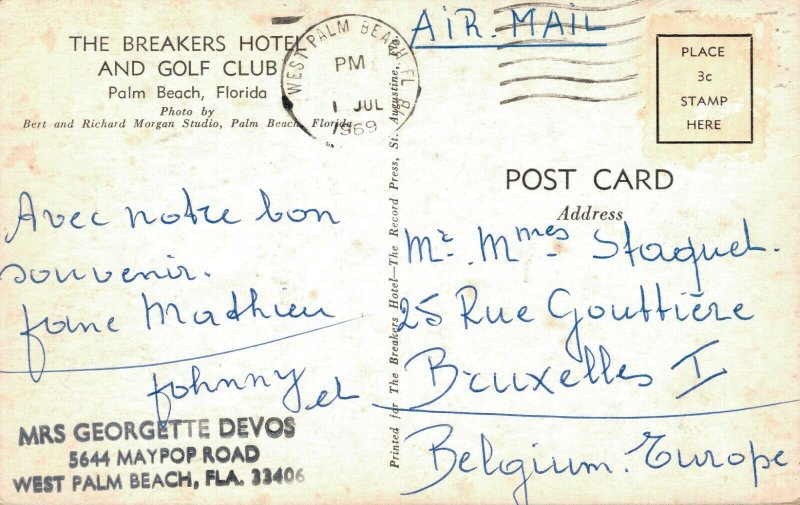 THE BREAKERS HOTEL
AND GOLF CLUB
Palm Beach, Florida
Photo by
Bert and Richard Morgan Studio, Palm Beach, Florida
WEST PALM BEACH, FL
PM
1 JUL
1969
AIR MAIL
PLACE
3c
STAMP
HERE
Printed for The Breakers Hotel—The Record Press, St. Augustine, Fla
Avec notre bon
souvenir.
Jane Mathieu
Johnny et
MRS GEORGETTE DEVOS
5644 MAYPOP ROAD
WEST PALM BEACH, FLA. 33406
POST CARD
Address
Mr. Mmes Staquet.
25 Rue Gouttière
Bruxelles I
Belgium. Europe.